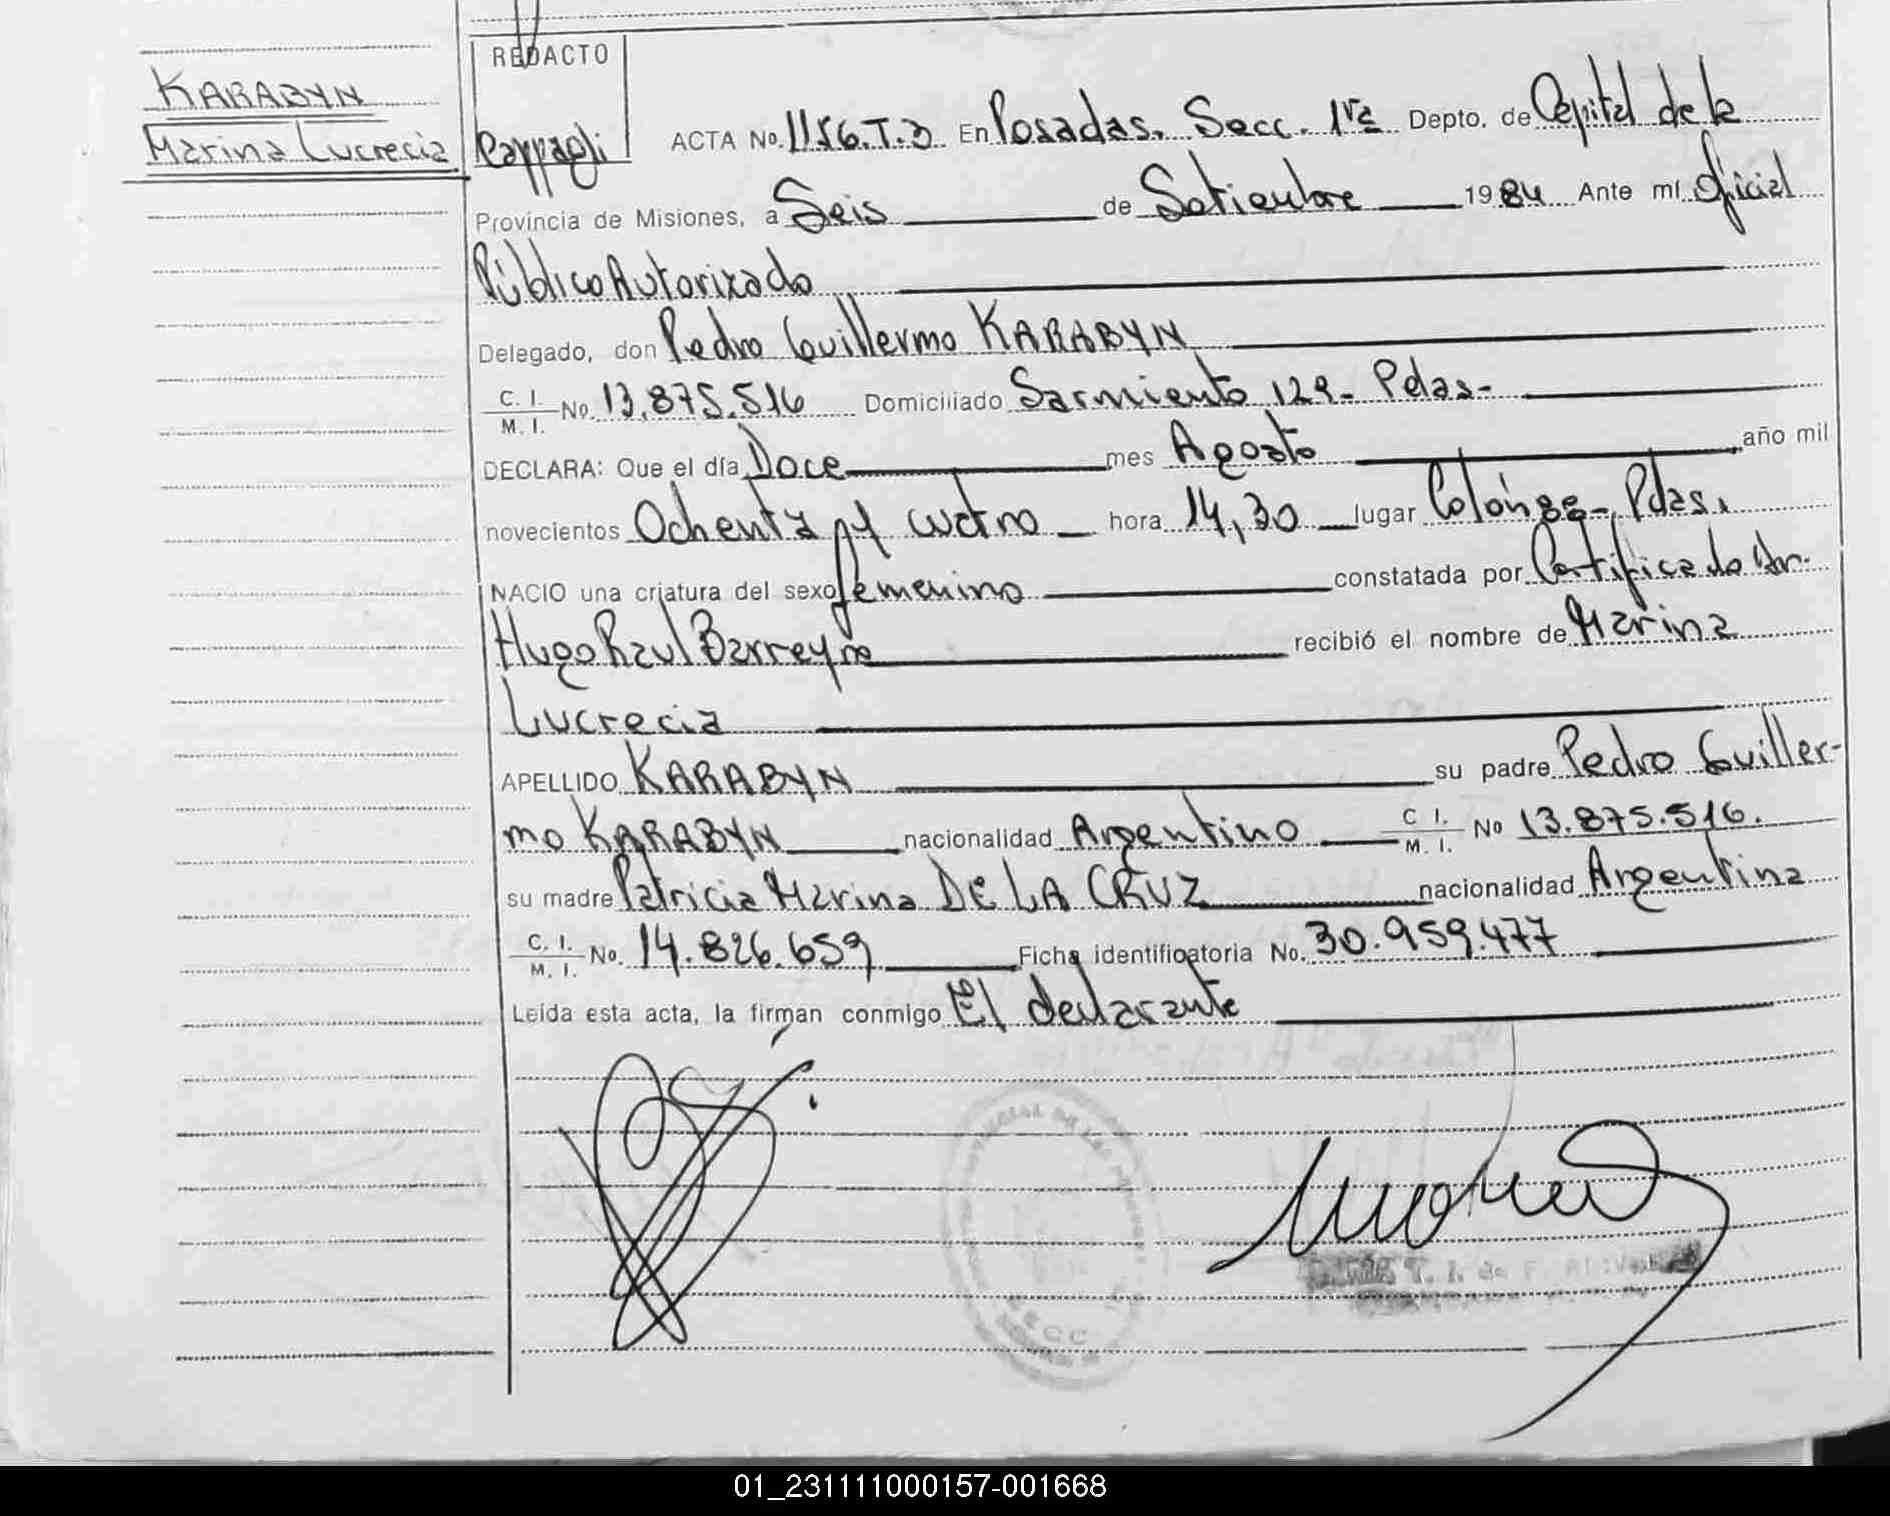 KARABYN
Marina Lucrecia
REDACTO
ACTA No. 1156.T.3 En Posadas. Secc. 1ra Depto. de Capital de la
Provincia de Misiones, a Seis de Setiembre 1984 Ante mí Oficial
Público Autorizado
Delegado, don Pedro Guillermo KARABYN
C. I. / M. I. No. 13.875.516 Domiciliado Sarmiento 129- Pdas-
DECLARA: Que el día Doce mes Agosto año mil
novecientos Ochenta y cuatro hora 14,30 lugar Colón 88-, Pdas.
NACIO una criatura del sexo femenino constatada por Certificado Dr.
Hugo Raul Barreyro recibió el nombre de Marina
Lucrecia
APELLIDO KARABYN su padre Pedro Guiller-
mo KARABYN nacionalidad Argentino C. I. / M. I. No 13.875.516.
su madre Patricia Marina DE LA CRUZ nacionalidad Argentina
C. I. / M. I. No. 14.826.659 Ficha identificatoria No. 30.959.477
Leída esta acta, la firman conmigo El declarante
01_231111000157-001668